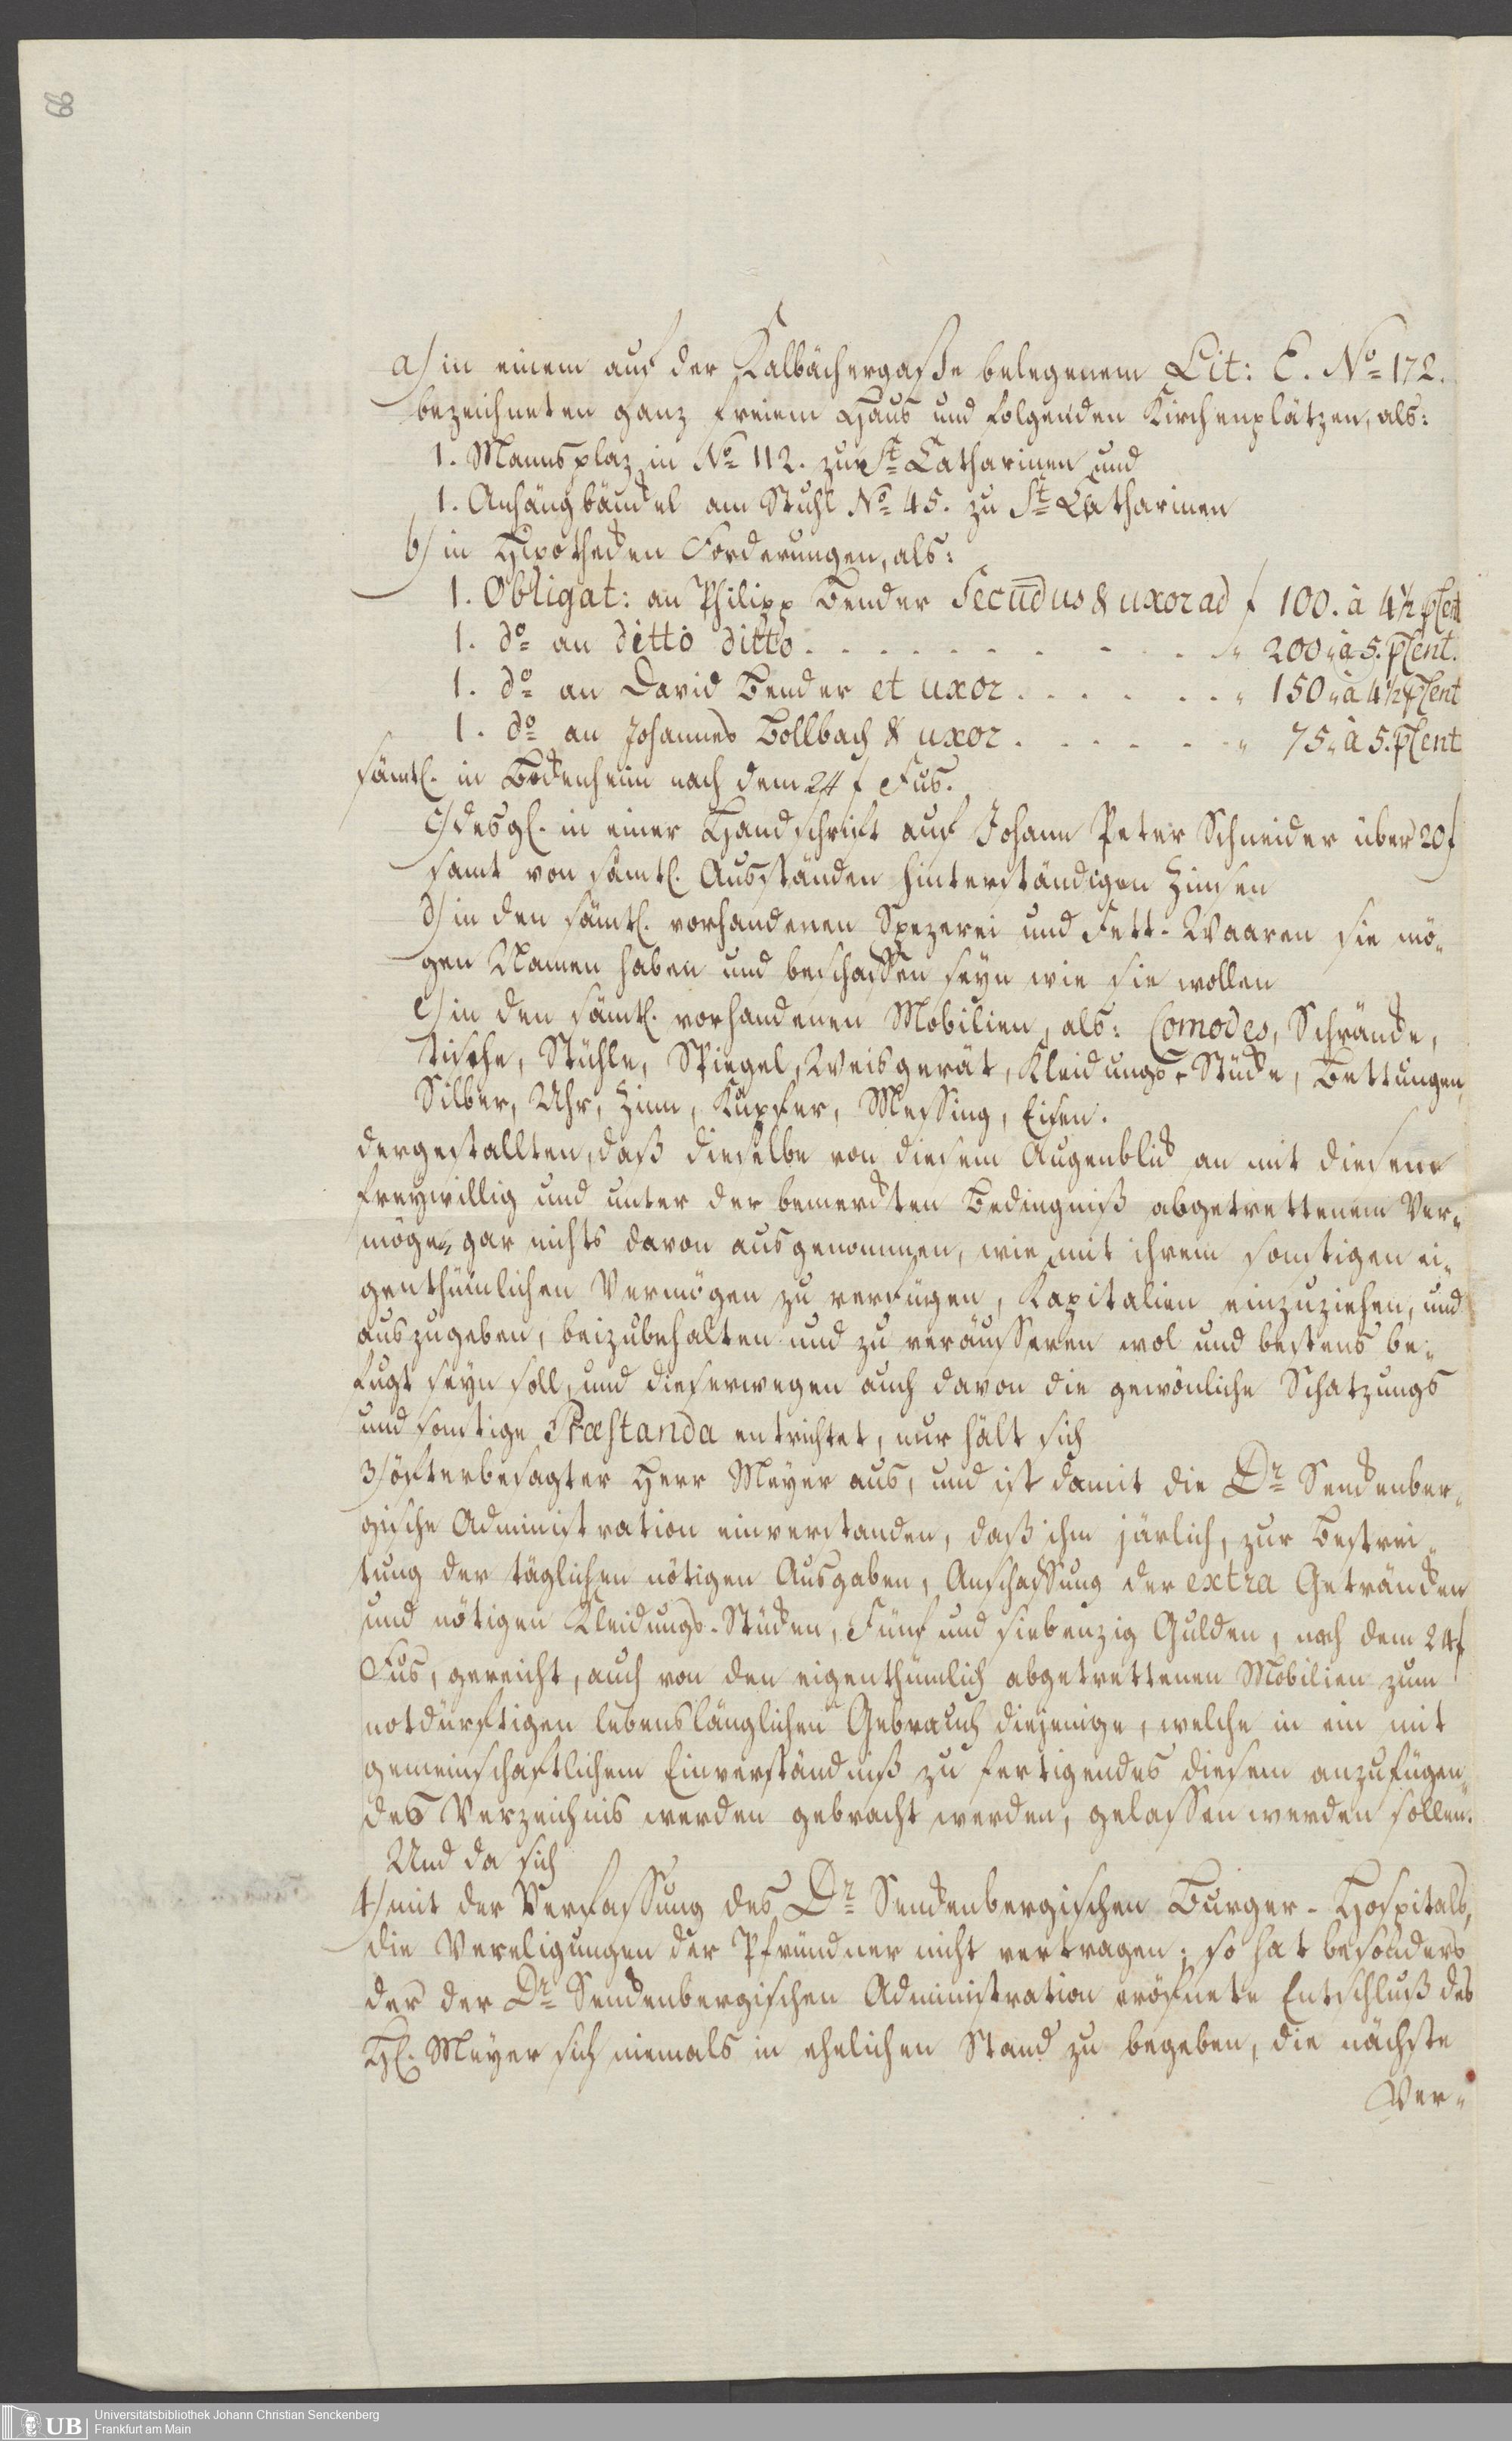 a) in einem auf der Kalbächergaße belegenem Lit: E. No 172.
bezeichneten ganz freiem Haus und folgenden Kirchenplätzen, als:
1. Mannsplaz in No 112. zur St Catharinen und
1. Anhängbänckel am Stuhl No 45. zu St Catharinen
b) in Hipothecken Forderungen, als:
1. Obligat: an Philipp Bender Secūdus & uxor ad f 100. à 4½ pCent
1. do an ditto ditto . . . . . . . . . . . „ 200 „ à 5. pCent.
1. do an David Bender et uxor . . . . . . . „ 150 „ à 4½ pCent
1. do an Johannes Bollbach & uxor . . . . . . „ 75 „ à 5. pCent
sämtl. in Bockenheim nach dem 24 f Fus.
c) desgl. in einer Handschrift auf Johann Peter Schneider über 20 f
samt von sämtl. Ausständen hinterständigen Zinsen
d) in den sämtl. vorhandenen Spezerei und Fett-Waaren sie mö-
gen Namen haben und beschaffen seyn wie sie wollen
e) in den sämtl. vorhandenen Mobilien, als: Comodes, Schräncke,
Tische, Stühle, Spiegel, Weisgerät, Kleidungs-Stücke, Bettungen,
Silber, Uhr, Zinn, Kupfer, Messing, Eisen.
dergestallten, daß dieselbe von diesem Augenblick an mit diesem
freywillig und unter der bemerckten Bedingniß abgetrettenem Ver-
mögen gar nichts davon ausgenommen, wie mit ihrem sonstigen ei-
genthümlichen Vermögen zu verfügen, Kapitalien einzuziehen, und
auszugeben, beizubehalten und zu veräusseren wol und bestens be-
fugt seyn soll, und dieserwegen auch davon die gewönliche Schatzungs
und sonstige Præstanda entrichtet, nur hält sich
3) öfterbesagter Herr Meyer aus, und ist damit die Dr Senckenber-
gische Administration einverstanden, daß ihm järlich, zur Bestrei-
tung der täglichen nötigen Ausgaben, Anschaffung der extra Geträncken
und nötigen Kleidungs-Stücken, Fünf und siebenzig Gulden, nach dem 24 f
Fus, gereicht, auch von den eigenthümlich abgetrettenen Mobilien zum
notdürftigen lebenslänglichen Gebrauch diejenige, welche in ein mit
gemeinschaftlichem Einverständniß zu fertigendes diesem anzufügen-
des Verzeichnis werden gebracht werden, gelassen werden sollen.
Und da sich
4) mit der Verfassung des Dr Senckenbergischen Burger-Hospitals,
die Vereligungen der Pfründner nicht vertragen; so hat besonders
der der Dr Senckenbergischen Administration eröfnete Entschluß des
H. Meyer sich niemals in ehelichen Stand zu begeben, die nächste
Ver-
UB
Universitätsbibliothek Johann Christian Senckenberg
Frankfurt am Main